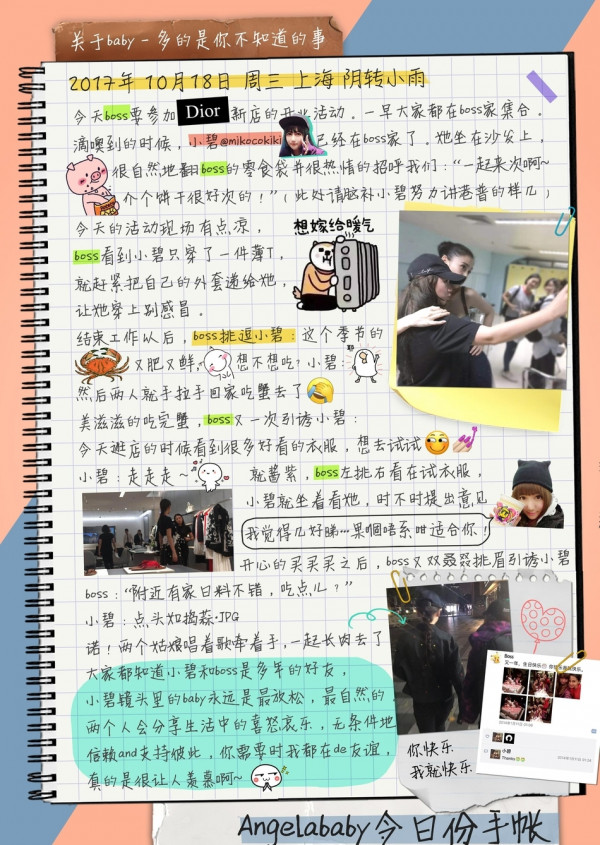 关于baby-多的是你不知道的事
2017年10月18日 周三 上海 阴转小雨
今天boss要参加 Dior 新店的开业活动。一早大家都在boss家集合。
滴噢到的时候，小碧@mikocokiki 已经在boss家了。她坐在沙发上，
很自然地翻boss的零食袋并很热情的招呼我们：“一起来次啊~
介个饼干很好次的！”（此处请脑补小碧努力讲港普的样儿）
今天的活动现场有点凉，
boss看到小碧只穿了一件薄T，
就赶紧把自己的外套递给她，
让她穿上别感冒。
想嫁给暖气
结束工作以后，boss挑逗小碧：这个季节的
又肥又鲜，想不想吃？小碧：
然后两人就手拉手回家吃蟹去了
美滋滋的吃完蟹，boss又一次引诱小碧：
今天逛店的时候看到很多好看的衣服，想去试试
小碧：走走走~
就酱紫，boss左挑右看在试衣服，
小碧就坐着看她，时不时提出意见
我觉得几好睇…果嗰唔系咁适合你！
开心的买买买之后，boss又双叒叕挑眉引诱小碧
boss：“附近有家日料不错，吃点儿？”
小碧：点头如捣蒜.JPG
诺！两个姑娘唱着歌牵着手，一起长肉去了
大家都知道小碧和boss是多年的好友，
小碧镜头里的baby永远是最放松，最自然的。
两个人会分享生活中的喜怒哀乐，无条件地
信赖and支持彼此，你需要时我都在de友谊，
真的是很让人羡慕啊~
你快乐
我就快乐
Boss
小碧
Thanks
Angelababy今日份手帐